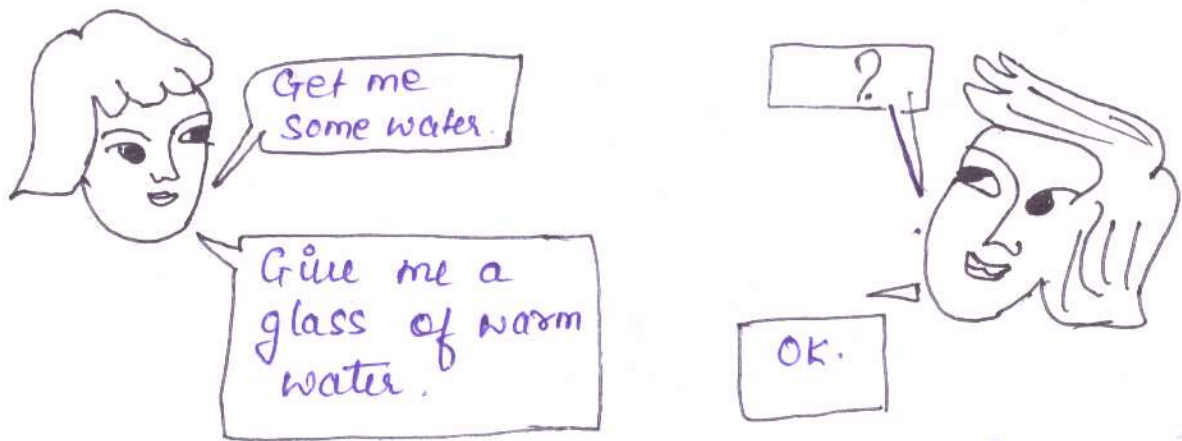 Get me
some water.
?
Give me a
glass of warm
water.
OK.